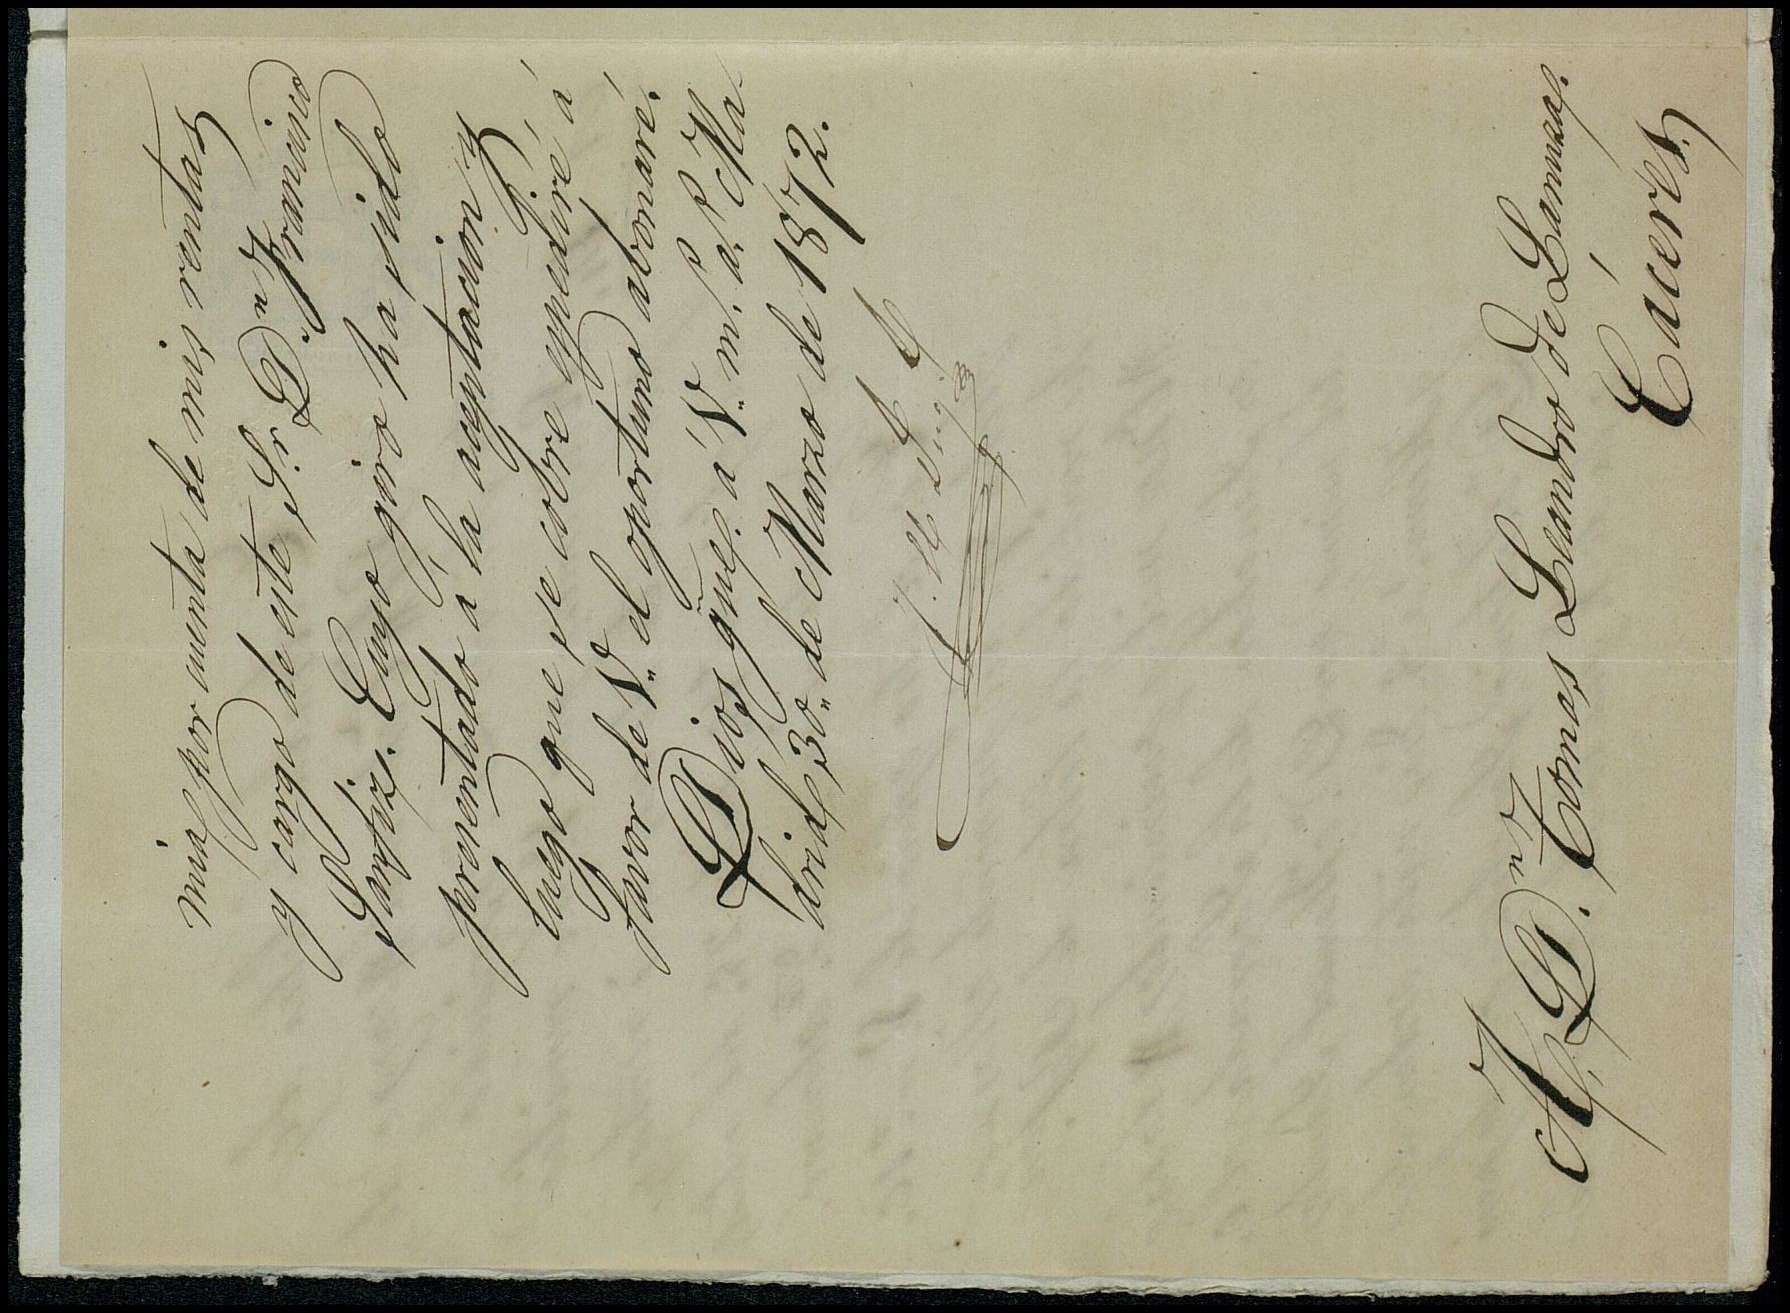 mia por cuenta de mis rentas
y cargo de este Sr. Dn. Francisco
Santiz. Cuyo giro ha sido
presentado á la aceptacion y
luego que se cobre espediré á
favor de V. el oportuno abonaré.
Dios gue. á V. m. a. Ma-
drid 30 de Marzo de 1872.
A. Dn. Tomas Leandro de
Cáceres